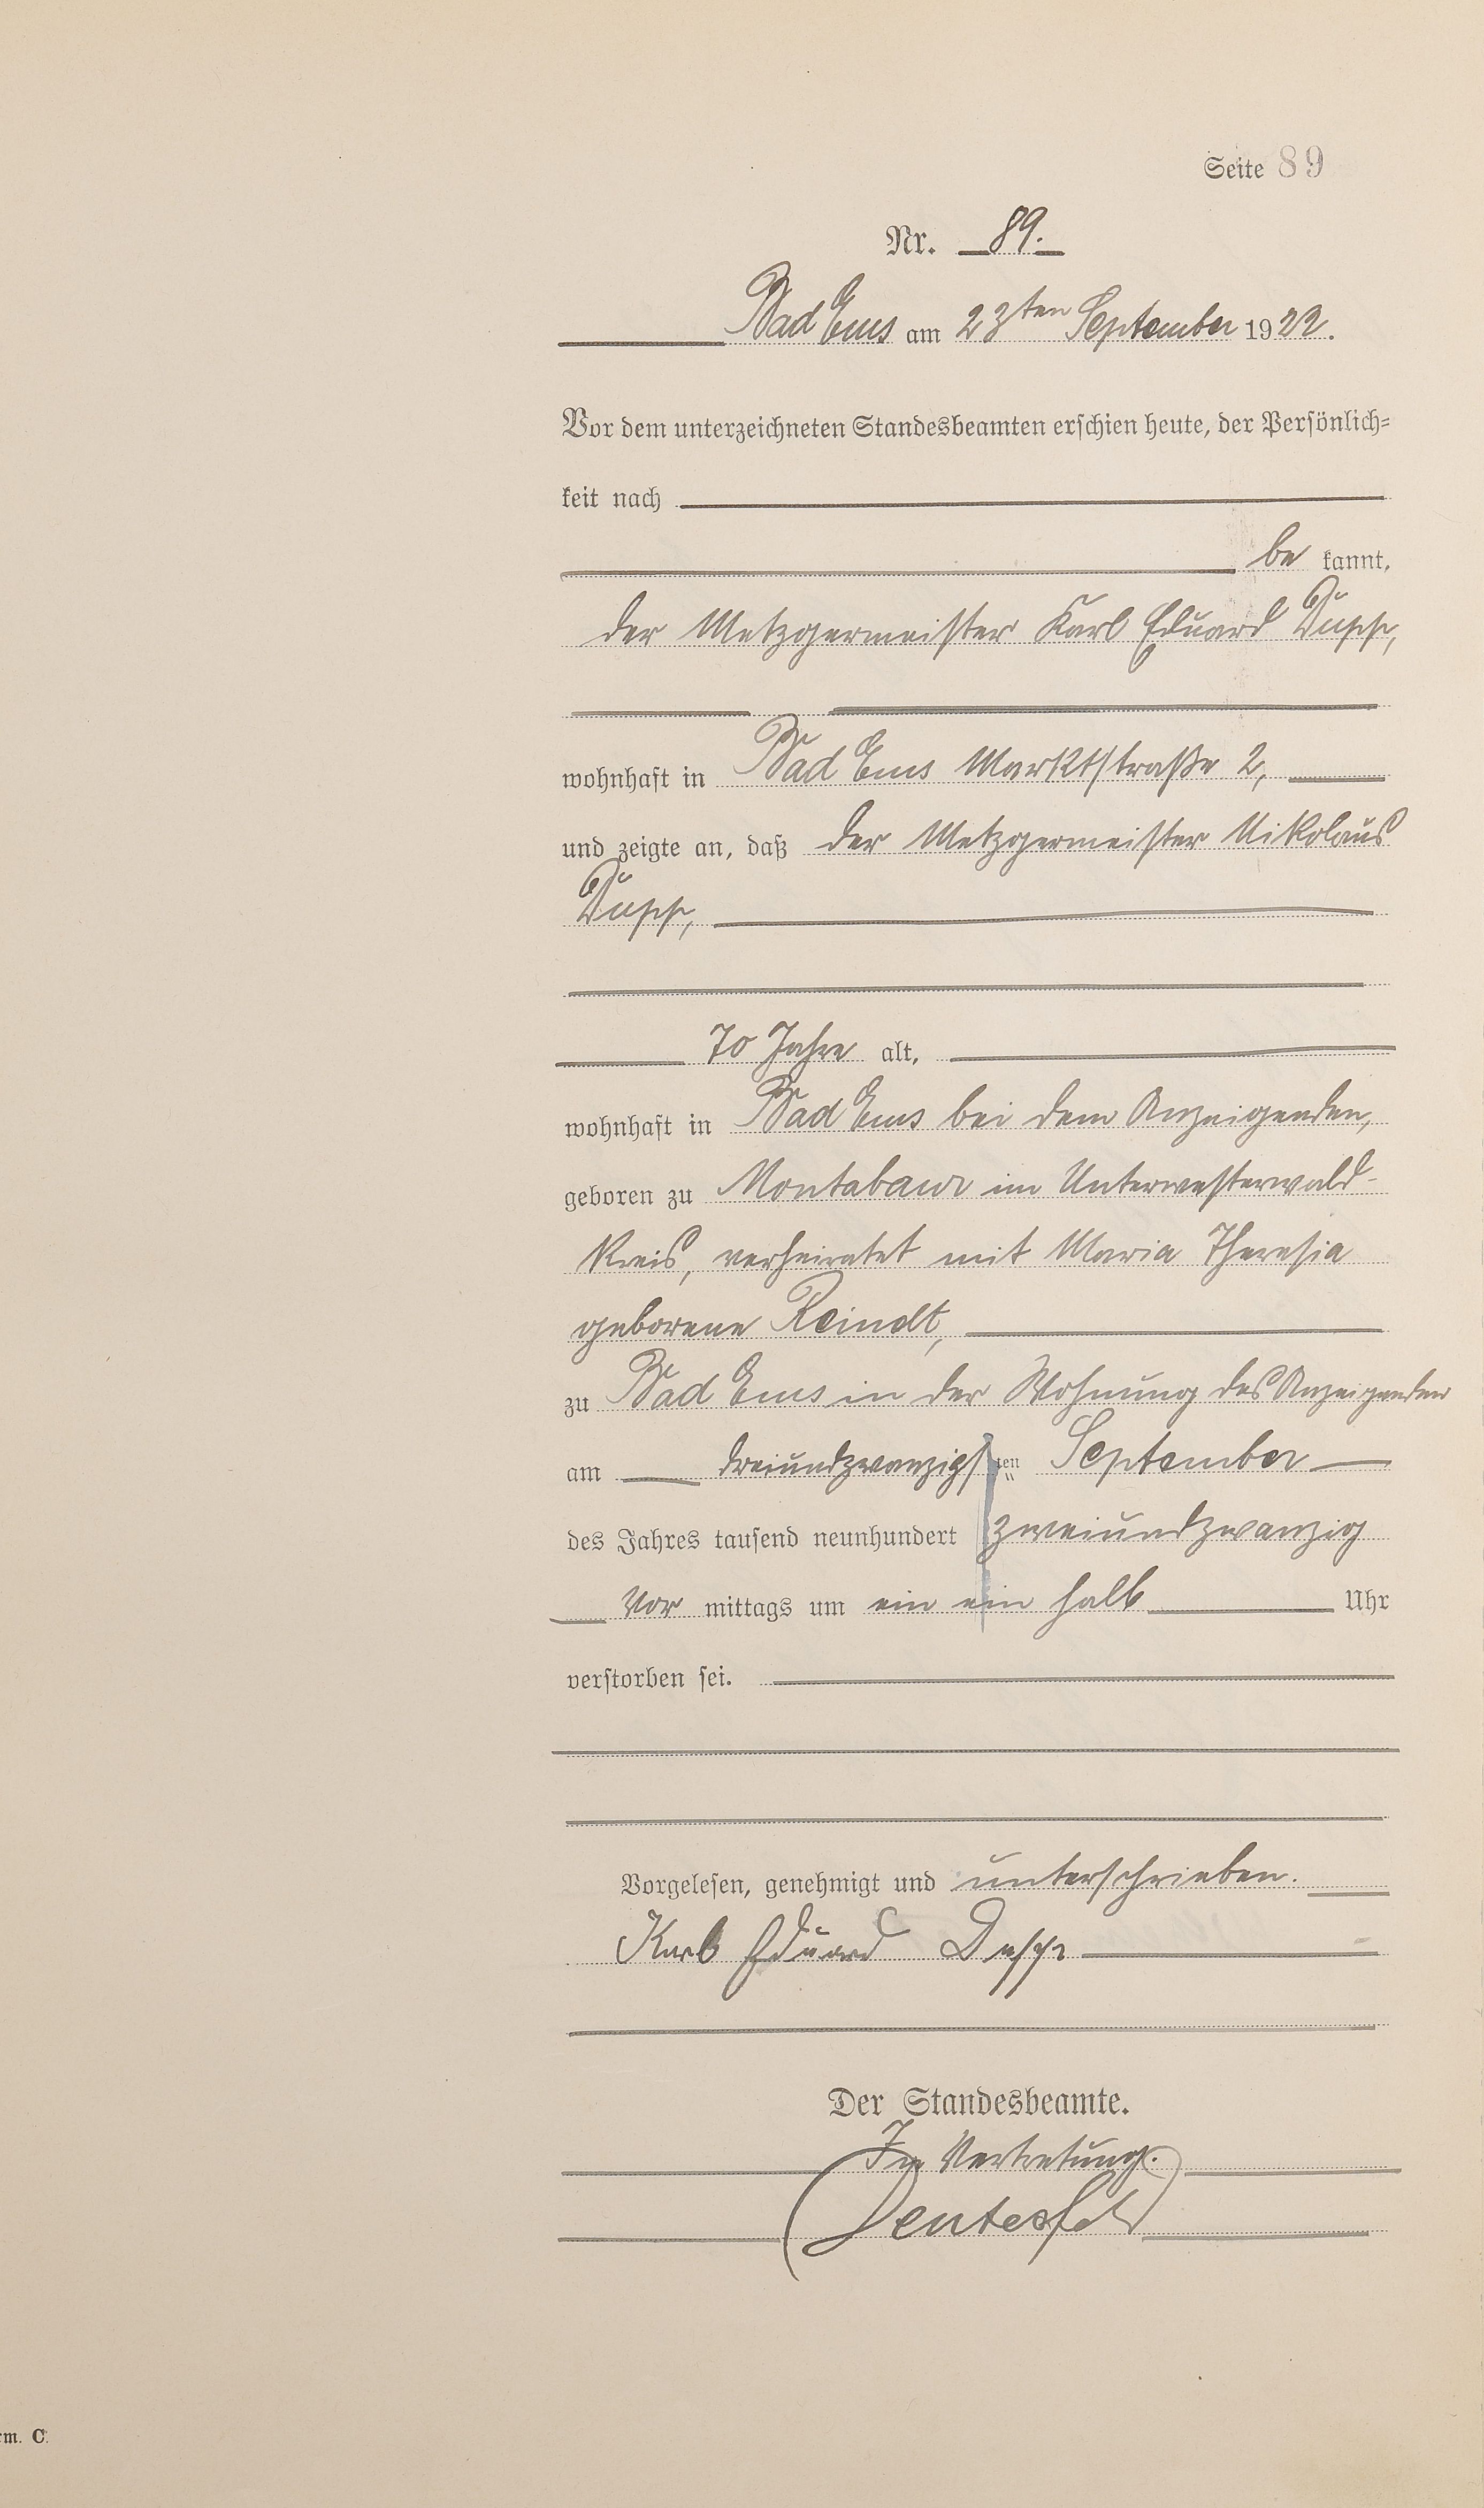 Seite 89
Nr. 89.
Bad Ems am 23ten September 1922.
Vor dem unterzeichneten Standesbeamten erschien heute, der Persönlich=
keit nach
be kannt,
der Metzgermeister Karl Eduard Dupp,
wohnhaft in Bad Ems Marktstraße 2,
und zeigte an, daß der Metzgermeister Nikolaus
Dupp,
70 Jahre alt,
wohnhaft in Bad Ems bei dem Anzeigenden,
geboren zu Montabaur im Unterwesterwald-
Kreis, verheiratet mit Maria Theresia
geborene Reindt,
zu Bad Ems in der Wohnung des Anzeigenden
am dreiundzwanzigsten September
des Jahres tausend neunhundert zweiundzwanzig
Vor mittags um ein ein halb Uhr
verstorben sei.
Vorgelesen, genehmigt und unterschrieben.
Karl Eduard Dupp
Der Standesbeamte.
In Vertretung.
rm. C.